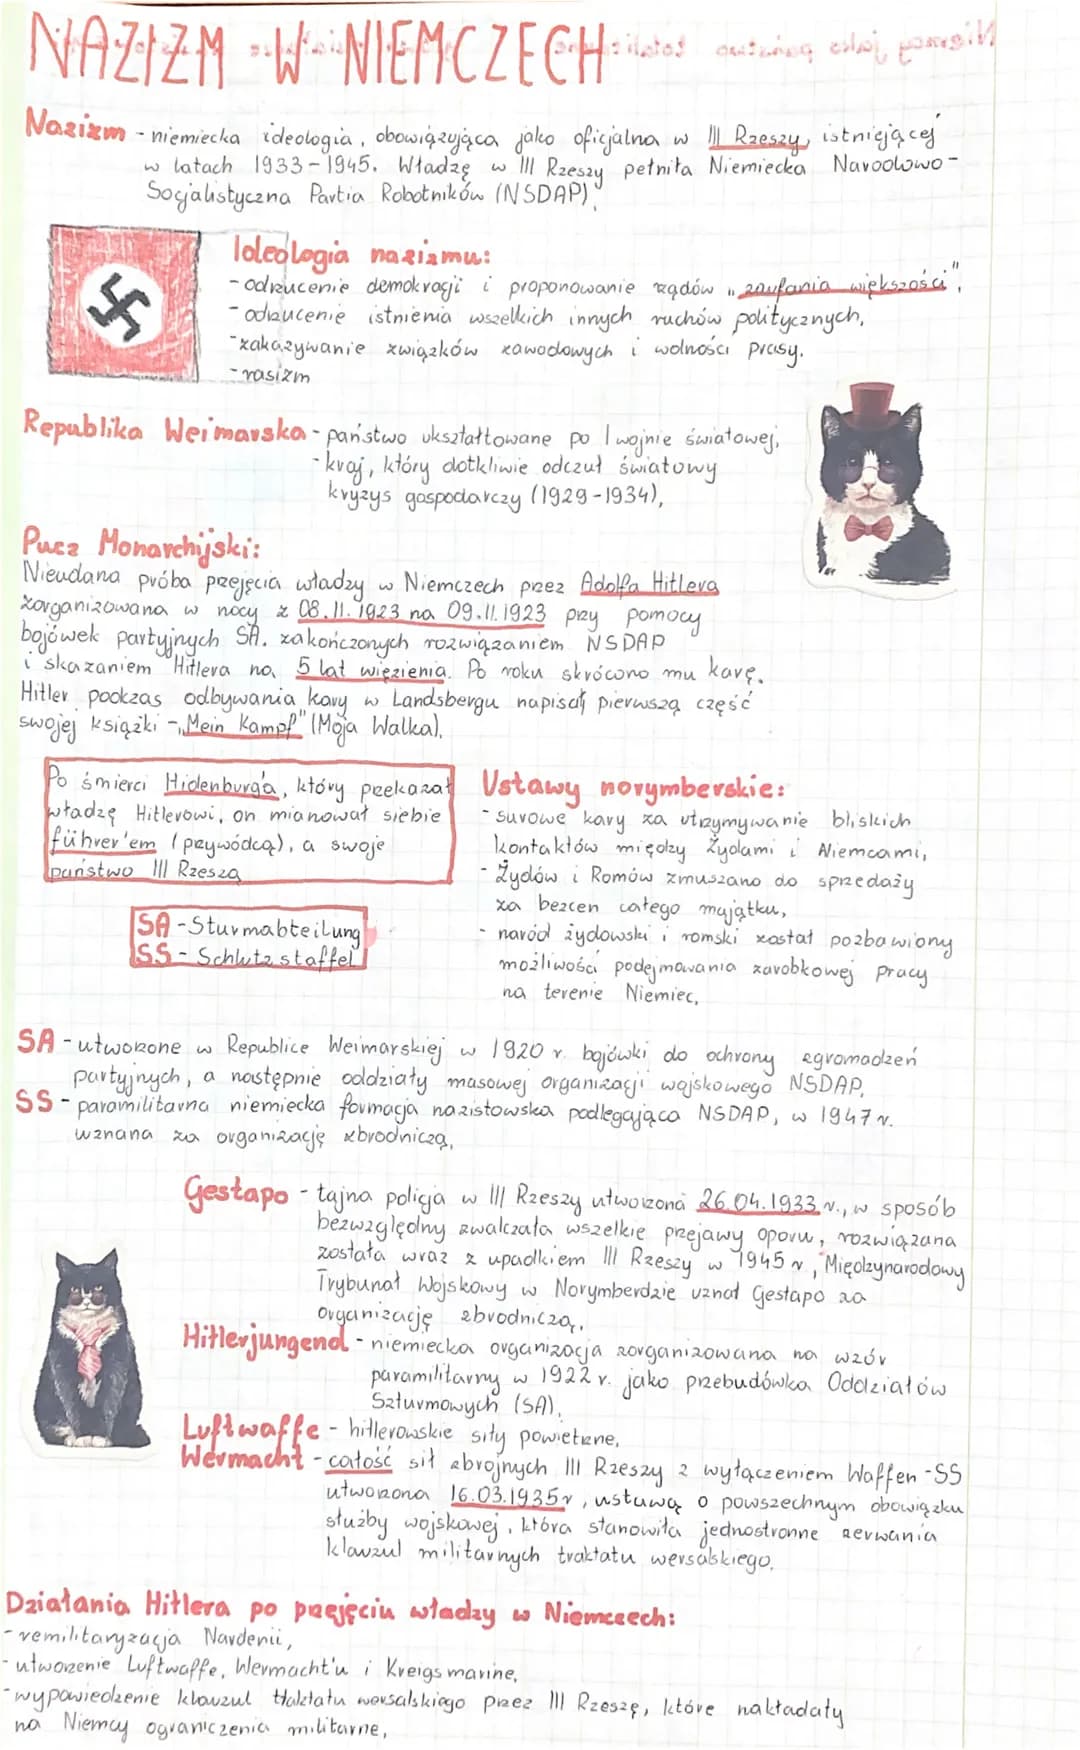 NAZIZM W NIEMCZECH
Nazizm - niemiecka ideologia, obowiązująca jako oficjalna w III Rzeszy, istniejącej
w latach 1933-1945. Władzę w III Rzeszy pełniła Niemiecka Narodowo-
Socjalistyczna Partia Robotników (NSDAP),
Ideologia nazizmu:
- odrzucenie demokracji i proponowanie rządów "zaufania większości",
- odrzucenie istnienia wszelkich innych ruchów politycznych,
- zakazywanie związków zawodowych i wolności prasy.
- rasizm
Republika Weimarska - państwo ukształtowane po I wojnie światowej,
- kraj, który dotkliwie odczuł światowy
kryzys gospodarczy (1929-1934),
Pucz Monarchijski:
Nieudana próba przejęcia władzy w Niemczech przez Adolfa Hitlera
zorganizowana w nocy z 08.11.1923 na 09.11.1923 przy pomocy
bojówek partyjnych SA. zakończonych rozwiązaniem NSDAP
i skazaniem Hitlera na 5 lat więzienia. Po roku skrócono mu karę.
Hitler podczas odbywania kary w Landsbergu napisał pierwszą część
swojej książki - „Mein Kampf" (Moja Walka).
Po śmierci Hidenburga, który przekazał
władzę Hitlerowi, on mianował siebie
führer'em (przywódcą), a swoje
państwo III Rzeszą
SA - Sturmabteilung
SS - Schlutzstaffel
Ustawy norymberskie:
- surowe kary za utrzymywanie bliskich
kontaktów między Żydami i Niemcami,
- Żydów i Romów zmuszano do sprzedaży
za bezcen całego majątku,
- naród żydowski i romski został pozbawiony
możliwości podejmowania zarobkowej pracy
na terenie Niemiec,
SA - utworzone w Republice Weimarskiej w 1920 r. bojówki do ochrony zgromadzeń
partyjnych, a następnie oddziały masowej organizacji wojskowego NSDAP,
SS - paramilitarna niemiecka formacja nazistowska podlegająca NSDAP, w 1947 r.
uznana za organizację zbrodniczą,
Gestapo - tajna policja w III Rzeszy utworzona 26.04.1933 r., w sposób
bezwzględny zwalczała wszelkie przejawy oporu, rozwiązana
została wraz z upadkiem III Rzeszy w 1945 r, Międzynarodowy
Trybunał Wojskowy w Norymberdzie uznał Gestapo za
organizację zbrodniczą,
Hitlerjungend - niemiecka organizacja zorganizowana na wzór
paramilitarny w 1922 r. jako przebudówka Oddziałów
Szturmowych (SA),
Luftwaffe - hitlerowskie siły powietrzne,
Wermacht - całość sił zbrojnych III Rzeszy z wyłączeniem Waffen-SS
utworzona 16.03.1935r, ustawą o powszechnym obowiązku
służby wojskowej, która stanowiła jednostronne zerwania
klauzul militarnych traktatu wersalskiego,
Działania Hitlera po przejęciu władzy w Niemczech:
- remilitaryzacja Nardenii,
- utworzenie Luftwaffe, Wermacht'u i Kreigsmarine,
- wypowiedzenie klauzul traktatu wersalskiego przez III Rzeszę, które nakładały
na Niemcy ograniczenia militarne,